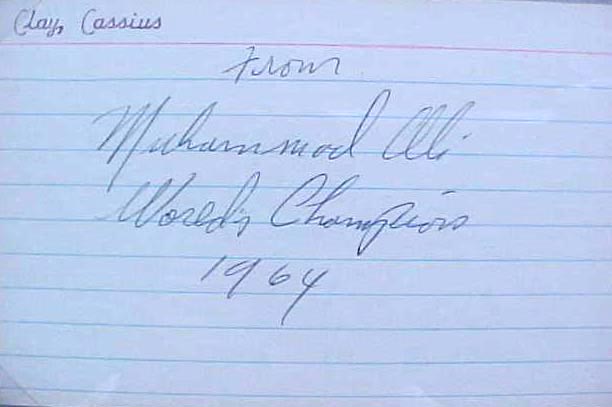 Clay, Cassius
From
Muhammad Ali
World's Champions
1964